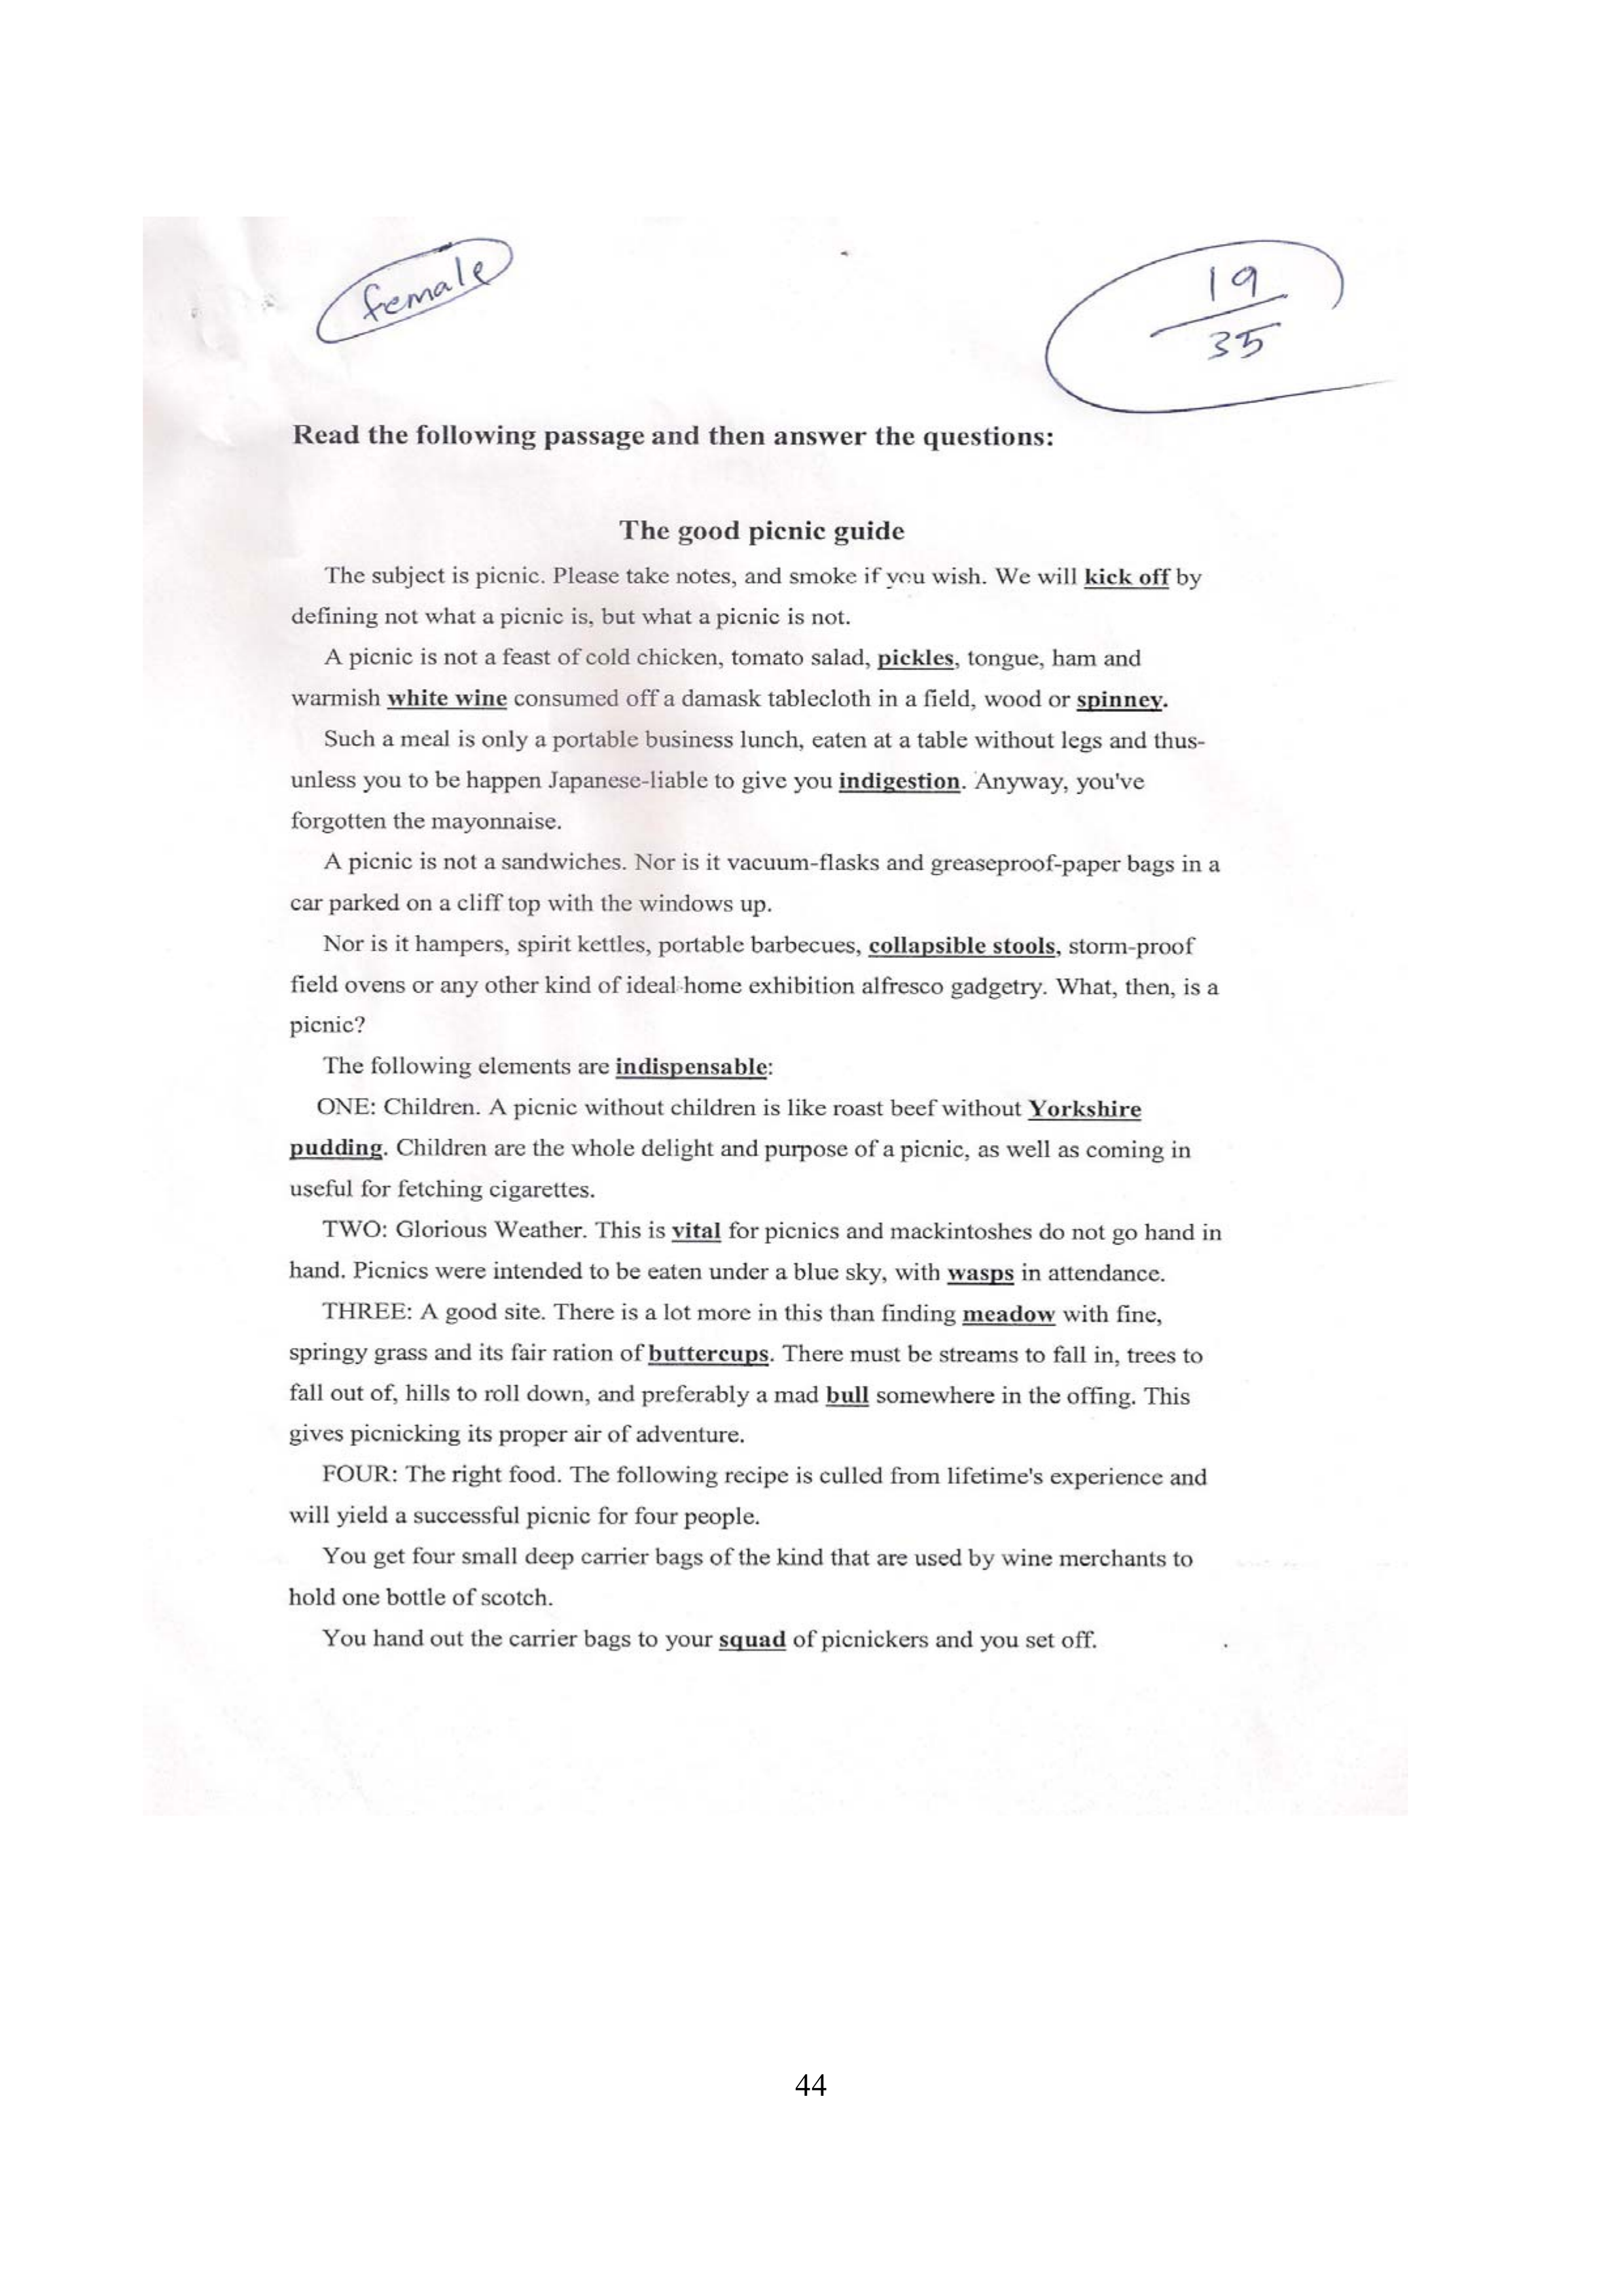 female
19
35
Read the following passage and then answer the questions:
The good picnic guide
The subject is picnic. Please take notes, and smoke if you wish. We will kick off by
defining not what a picnic is, but what a picnic is not.
A picnic is not a feast of cold chicken, tomato salad, pickles, tongue, ham and
warmish white wine consumed off a damask tablecloth in a field, wood or spinney.
Such a meal is only a portable business lunch, eaten at a table without legs and thus-
unless you to be happen Japanese-liable to give you indigestion. Anyway, you've
forgotten the mayonnaise.
A picnic is not a sandwiches. Nor is it vacuum-flasks and greaseproof-paper bags in a
car parked on a cliff top with the windows up.
Nor is it hampers, spirit kettles, portable barbecues, collapsible stools, storm-proof
field ovens or any other kind of ideal-home exhibition alfresco gadgetry. What, then, is a
picnic?
The following elements are indispensable:
ONE: Children. A picnic without children is like roast beef without Yorkshire
pudding. Children are the whole delight and purpose of a picnic, as well as coming in
useful for fetching cigarettes.
TWO: Glorious Weather. This is vital for picnics and mackintoshes do not go hand in
hand. Picnics were intended to be eaten under a blue sky, with wasps in attendance.
THREE: A good site. There is a lot more in this than finding meadow with fine,
springy grass and its fair ration of buttercups. There must be streams to fall in, trees to
fall out of, hills to roll down, and preferably a mad bull somewhere in the offing. This
gives picnicking its proper air of adventure.
FOUR: The right food. The following recipe is culled from lifetime's experience and
will yield a successful picnic for four people.
You get four small deep carrier bags of the kind that are used by wine merchants to
hold one bottle of scotch.
You hand out the carrier bags to your squad of picnickers and you set off.
44